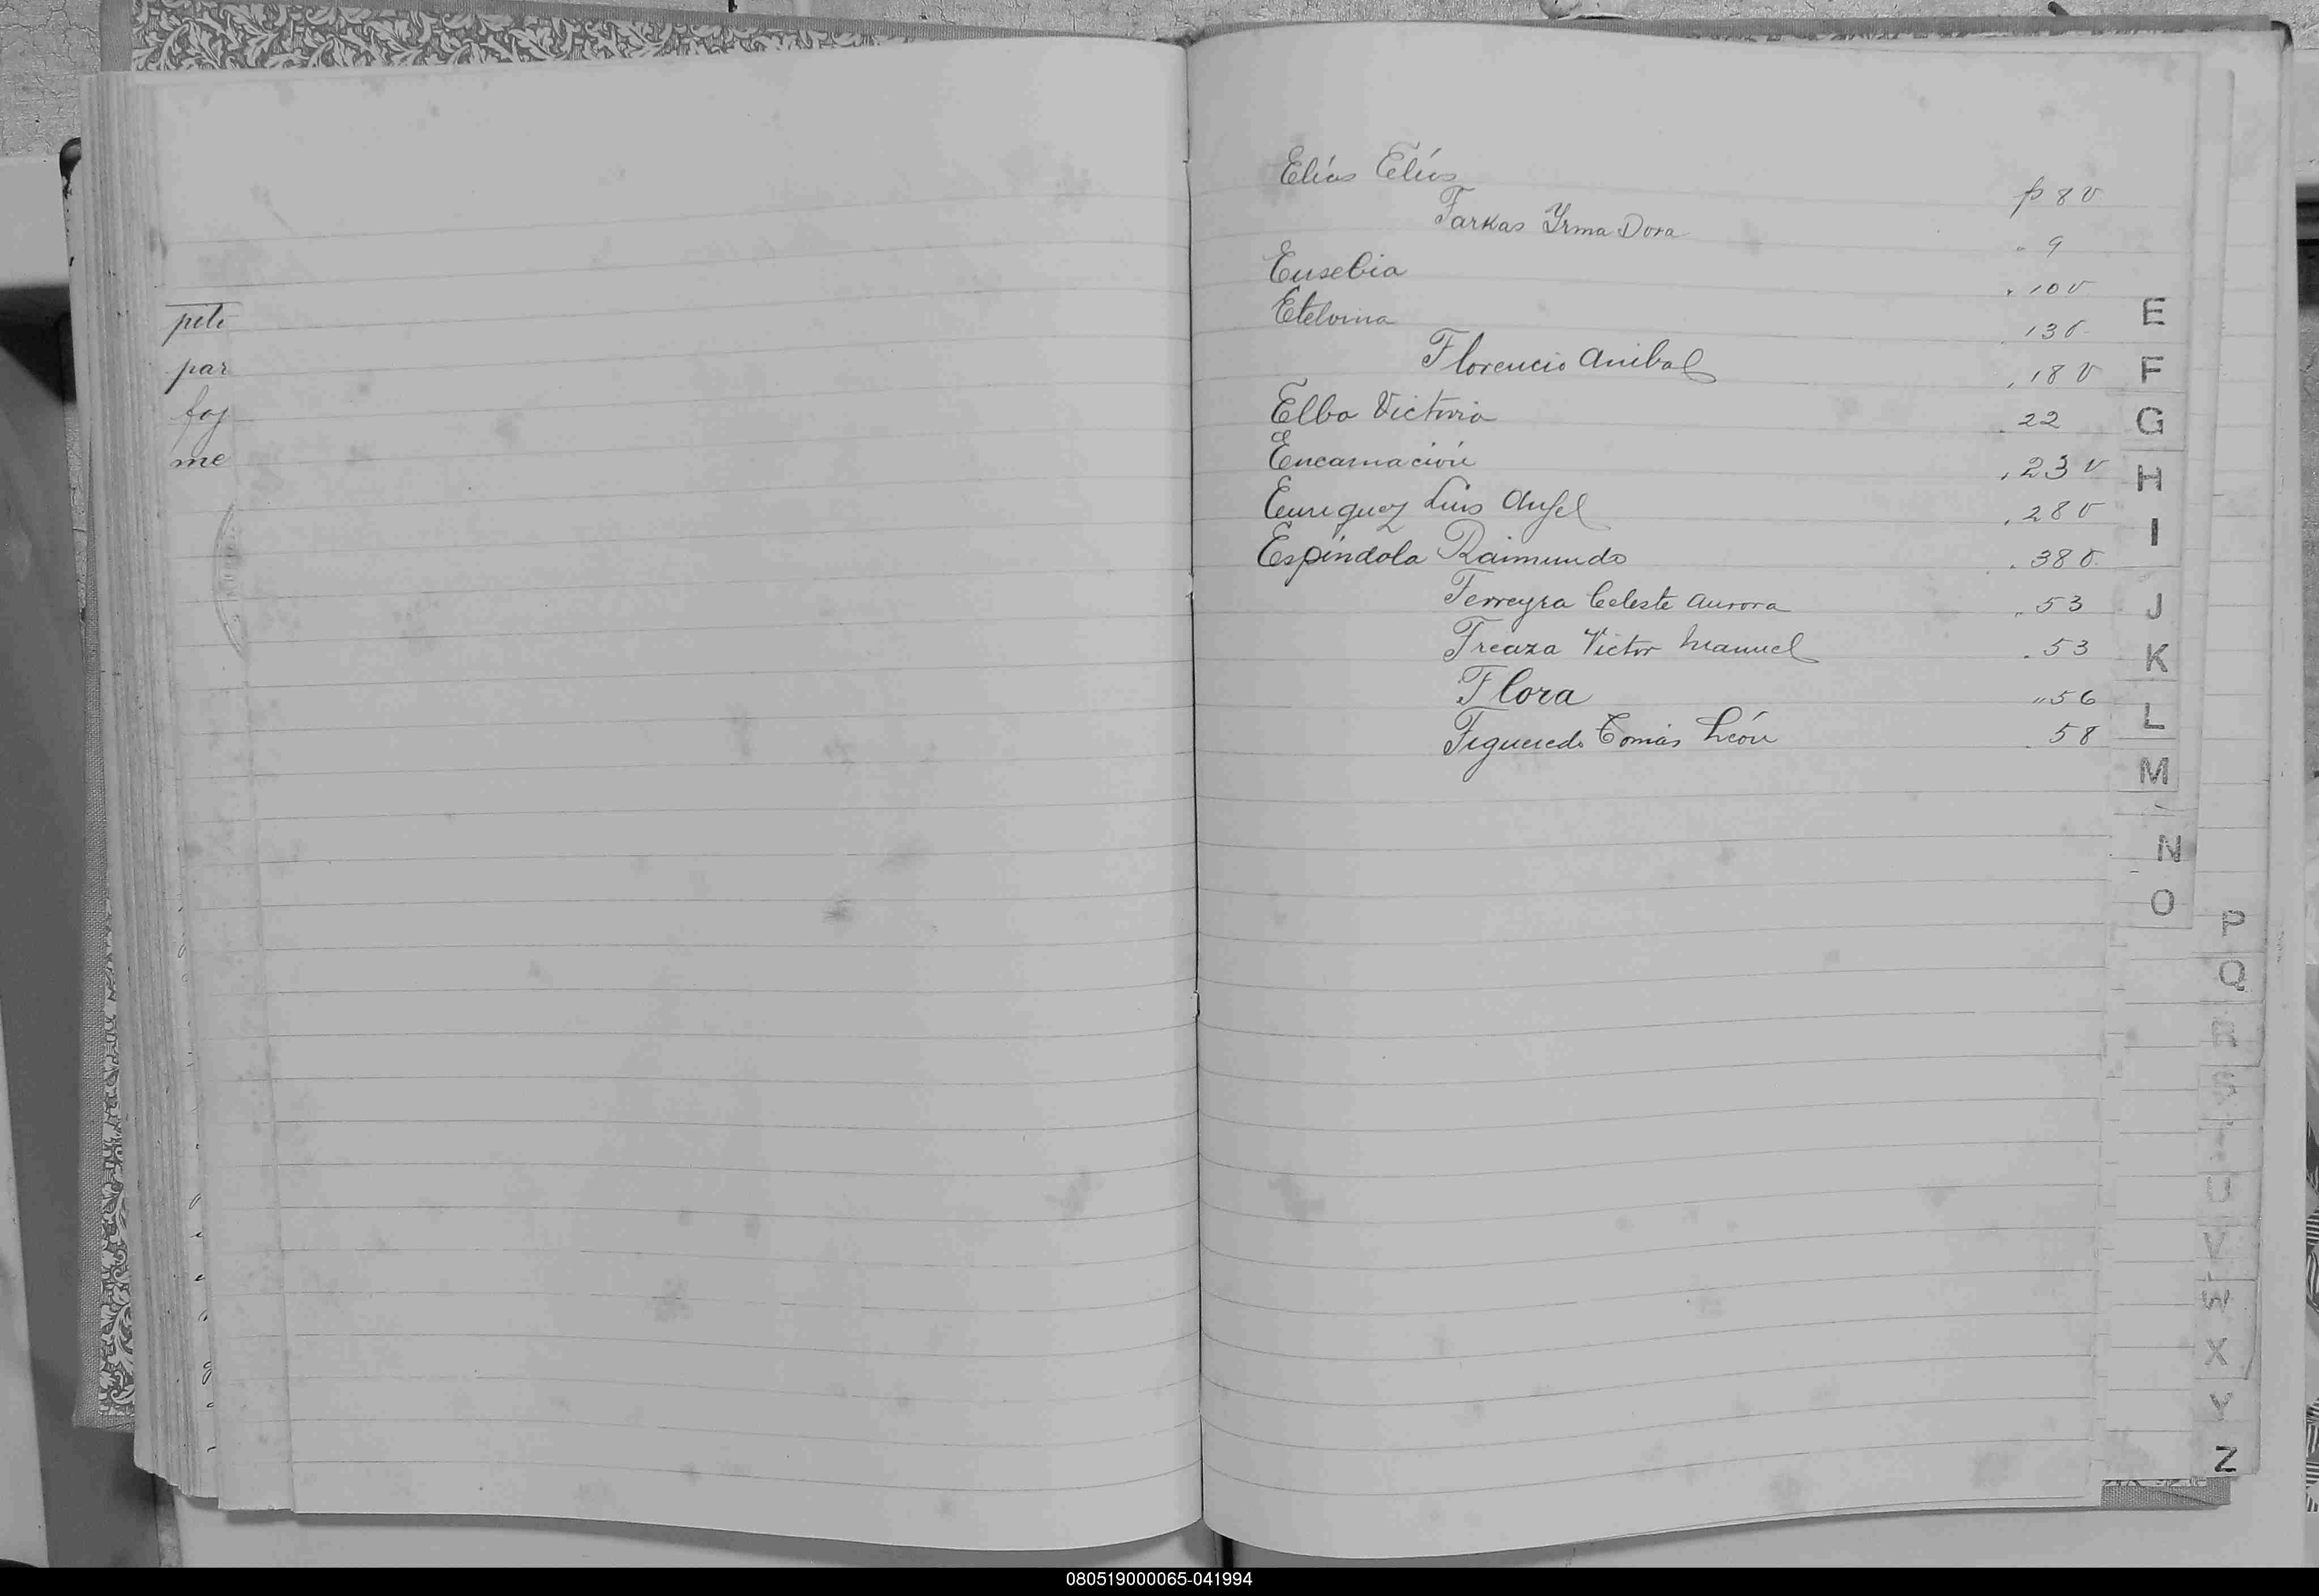 pete
par
foj
me
Elías Elías p 8 v
Farkas Yrma Dora " 9
Eusebia " 10 v
Etelvina " 13 v
Florencio Anibal " 18 v
Elba Victoria " 22
Encarnación " 23 v
Enriquez Luis Angel " 28 v
Espíndola Raimundo " 38 v
Ferreyra Celeste Aurora " 53
Freaza Victor Manuel " 53
Flora " 56
Figueredo Tomás León " 58
E
F
G
H
I
J
K
L
M
N
O
P
Q
R
S
U
V
W
X
Y
Z
080519000065-041994